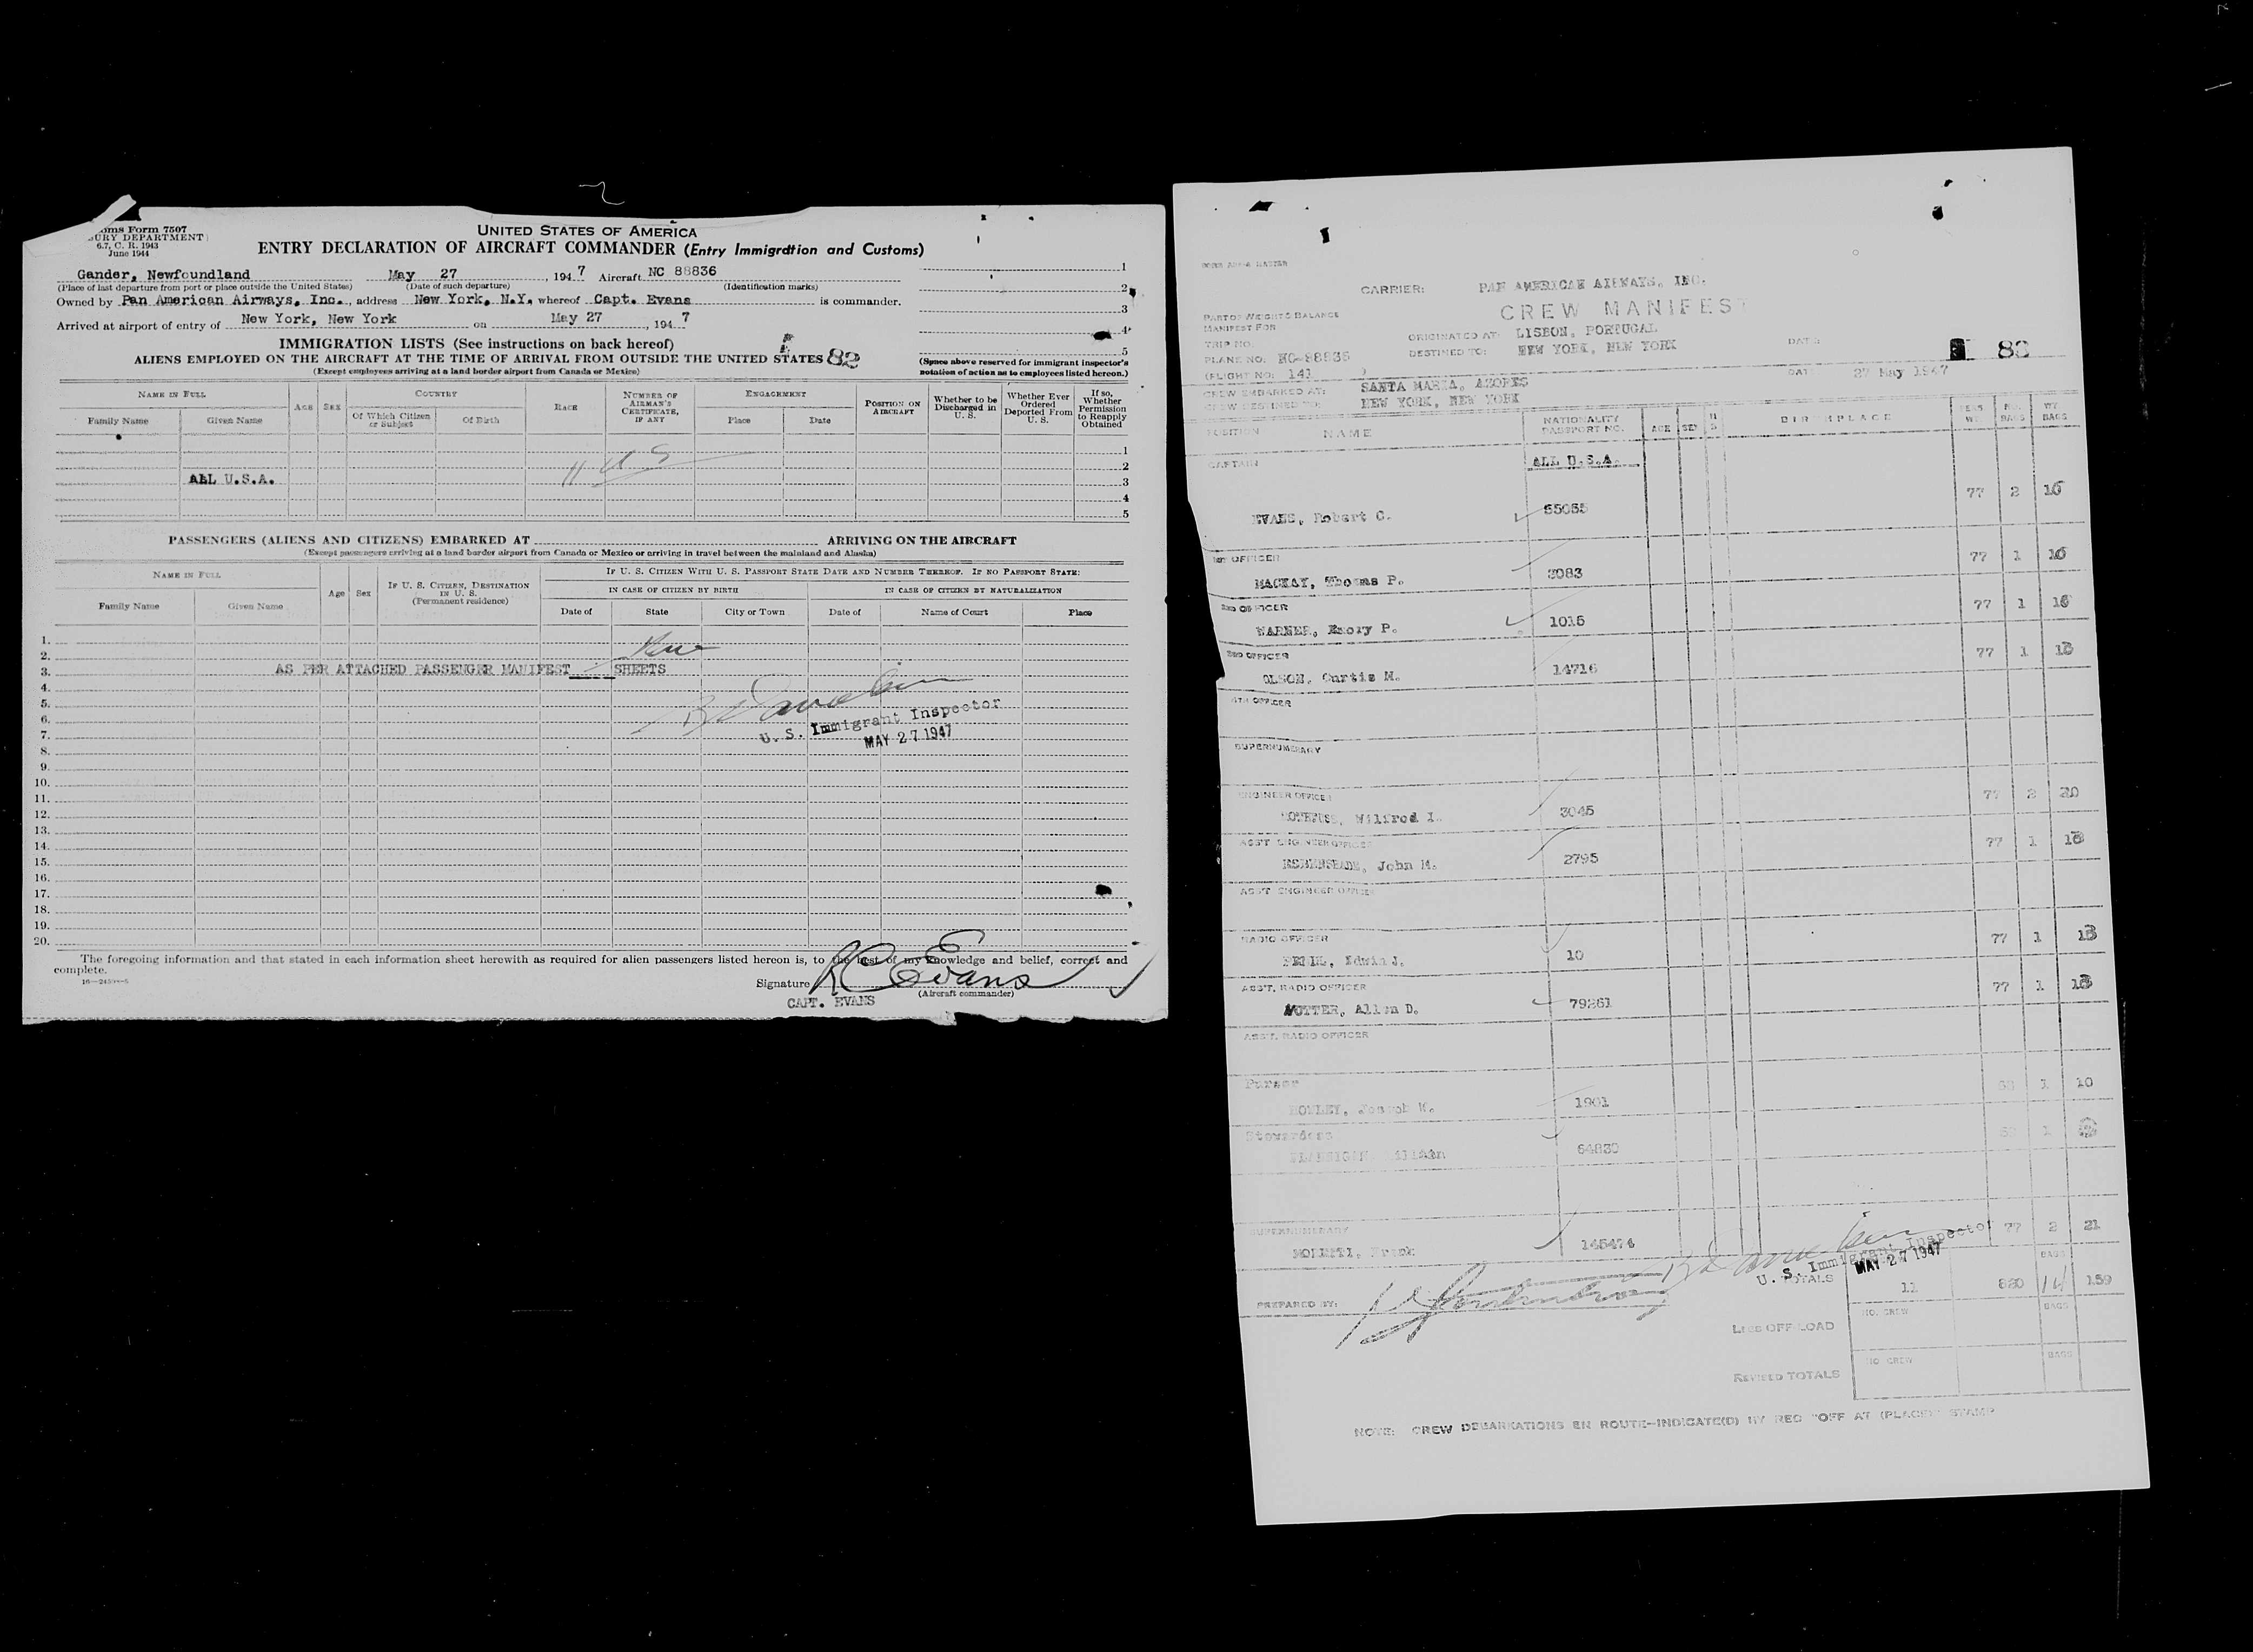 oms Form 7507
URY DEPARTMENT
6.7, C. R. 1943
June 1944
UNITED STATES OF AMERICA
ENTRY DECLARATION OF AIRCRAFT COMMANDER (Entry Immigration and Customs)
Gander, Newfoundland May 27, 1947 Aircraft NC 88836
(Place of last departure from port or place outside the United States) (Date of such departure) (Identification marks)
Owned by Pan American Airways, Inc., address New York, N.Y, whereof Capt. Evans is commander.
Arrived at airport of entry of New York, New York on May 27, 1947
1
2
3
4
5
IMMIGRATION LISTS (See instructions on back hereof)
ALIENS EMPLOYED ON THE AIRCRAFT AT THE TIME OF ARRIVAL FROM OUTSIDE THE UNITED STATES 82
(Except employees arriving at a land border airport from Canada or Mexico)
(Space above reserved for immigrant inspector's notation of action as to employees listed hereon.)
NAME IN FULL
Family Name Given Name
AGE SEX
COUNTRY
Of Which Citizen or Subject Of Birth
RACE
NUMBER OF AIRMAN'S CERTIFICATE, IF ANY
ENGAGEMENT
Place Date
POSITION ON AIRCRAFT
Whether to be Discharged in U. S.
Whether Ever Ordered Deported From U. S.
If so, Whether Permission to Reapply Obtained
1
2
ALL U.S.A. 3
4
5
11 US
PASSENGERS (ALIENS AND CITIZENS) EMBARKED AT ARRIVING ON THE AIRCRAFT
(Except passengers arriving at a land border airport from Canada or Mexico or arriving in travel between the mainland and Alaska)
NAME IN FULL
Family Name Given Name
Age Sex
IF U. S. CITIZEN, DESTINATION IN U. S. (Permanent residence)
IF U. S. CITIZEN WITH U. S. PASSPORT STATE DATE AND NUMBER THEREOF. IF NO PASSPORT STATE:
IN CASE OF CITIZEN BY BIRTH IN CASE OF CITIZEN BY NATURALIZATION
Date of State City or Town Date of Name of Court Place
1.
2.
3. AS PER ATTACHED PASSENGER MANIFEST SHEETS
4.
5.
6.
7.
U. S. Immigrant Inspector
MAY 27 1947
8.
9.
10.
11.
12.
13.
14.
15.
16.
17.
18.
19.
20.
The foregoing information and that stated in each information sheet herewith as required for alien passengers listed hereon is, to the best of my knowledge and belief, correct and
complete.
Signature RC Evans
(Aircraft commander)
CAPT. EVANS
CARRIER: PAN AMERICAN AIRWAYS, INC.
CREW MANIFEST
PART OF WEIGHT & BALANCE
MANIFEST FOR
TRIP NO.
ORIGINATED AT: LISBON, PORTUGAL
PLANE NO: NC-88836 DESTINED TO: NEW YORK, NEW YORK
83
(FLIGHT NO: 141 )
DATE 27 May 1947
CREW EMBARKED AT: SANTA MARIA, AZORES
CREW DESTINED TO: NEW YORK, NEW YORK
POSITION NAME NATIONALITY PASSPORT NO. AGE SEX BIRTHPLACE PERS. WT. NO. BAGS WT BAGS
CAPTAIN ALL U.S.A.
EVANS, Robert C. 77 2
1ST OFFICER
MACKAY, Thomas P. 3083 77 1
2ND OFFICER
WARNER, Emory P. 1015 77 1
3RD OFFICER
OLSON, Curtis M. 14716 77 1
4TH OFFICER
SUPERNUMERARY
ENGINEER OFFICER
Wilfred I. 3045 77 2 20
ASS'T ENGINEER OFFICER
John M. 2795 77 1
ASS'T ENGINEER OFFICER
RADIO OFFICER
Edwin J. 10 77 1
ASS'T. RADIO OFFICER
Allen D. 79261 77 1
ASS'T. RADIO OFFICER
Purser
Joseph W. 1901 1 10
Stewardess
64830 1
SUPERNUMERARY
Frank 145474 77 2 21
U. S. Immigrant Inspector
MAY 27 1947
PREPARED BY:
TOTALS 11 14 159
NO. CREW BAGS
LESS OFF-LOAD
NO. CREW BAGS
REVISED TOTALS
NOTE: CREW DEBARKATIONS EN ROUTE—INDICATE(D) BY RED "OFF AT (PLACE)" STAMP